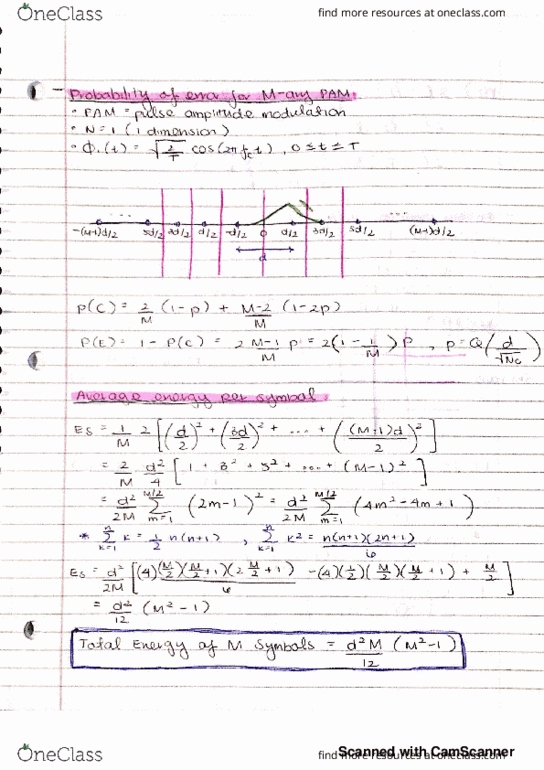 OneClass
find more resources at oneclass.com
Probability of error for M-ary PAM
• PAM = pulse amplitude modulation
• N=1 (1 dimension)
• Φ₁(t) = √(2/T) cos(2πf_c t), 0 ≤ t ≤ T
-(M-1)d/2 ... 5d/2 3d/2 d/2 -d/2 0 d/2 3d/2 5d/2 ... (M-1)d/2
d
P(C) = 2/M (1-p) + M-2/M (1-2p)
P(E) = 1 - P(C) = 2 M-1/M p = 2(1 - 1/M) p , p = Q(d/√N₀)
Average energy per symbol
Es = 1/M 2 [(d/2)² + (3d/2)² + ... + ((M-1)d/2)²]
= 2/M d²/4 [1 + 3² + 5² + ... + (M-1)²]
= d²/2M Σ_{m=1}^{M/2} (2m-1)² = d²/2M Σ_{m=1}^{M/2} (4m² - 4m + 1)
* Σ_{k=1}^{n} k = 1/2 n(n+1) , Σ_{k=1}^{n} k² = n(n+1)(2n+1)/6
Es = d²/2M [(4)(M/2)(M/2+1)(2 M/2 + 1)/6 - (4)(1/2)(M/2)(M/2+1) + M/2]
= d²/12 (M²-1)
Total Energy of M Symbols = d²M/12 (M²-1)
OneClass
find more resources at oneclass.com
Scanned with CamScanner